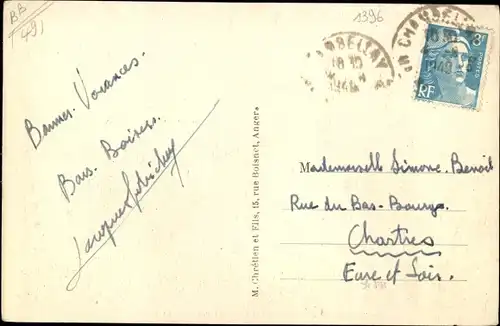 BB
(49)
1396
CHAMBELLAY
18 10
CHAMBELLAY
18 10
1949
RF
Bonnes Vacances.
Bons Baisers.
M. Chrétien et Fils, 15, rue Boisnet, Angers
Mademoiselle Simone Benoit
Rue du Bas-Bourgs
Chartres
Eure et Loir.